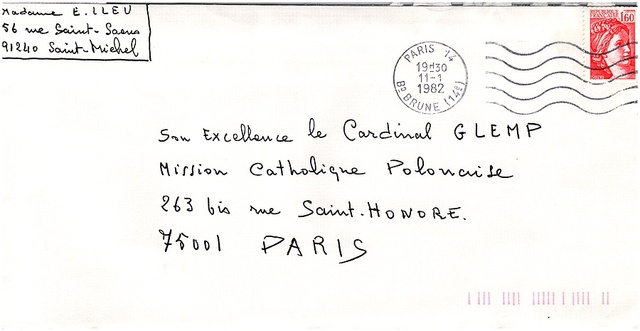 Madame E. LLEU
56 rue Saint-Saens
91240 Saint-Michel
PARIS 14
19H30
11-1
1982
BD BRUNE (14E)
1,60
Son Excellence le Cardinal GLEMP
Mission Catholique Polonaise
263 bis rue Saint-HONORE.
75001 PARIS